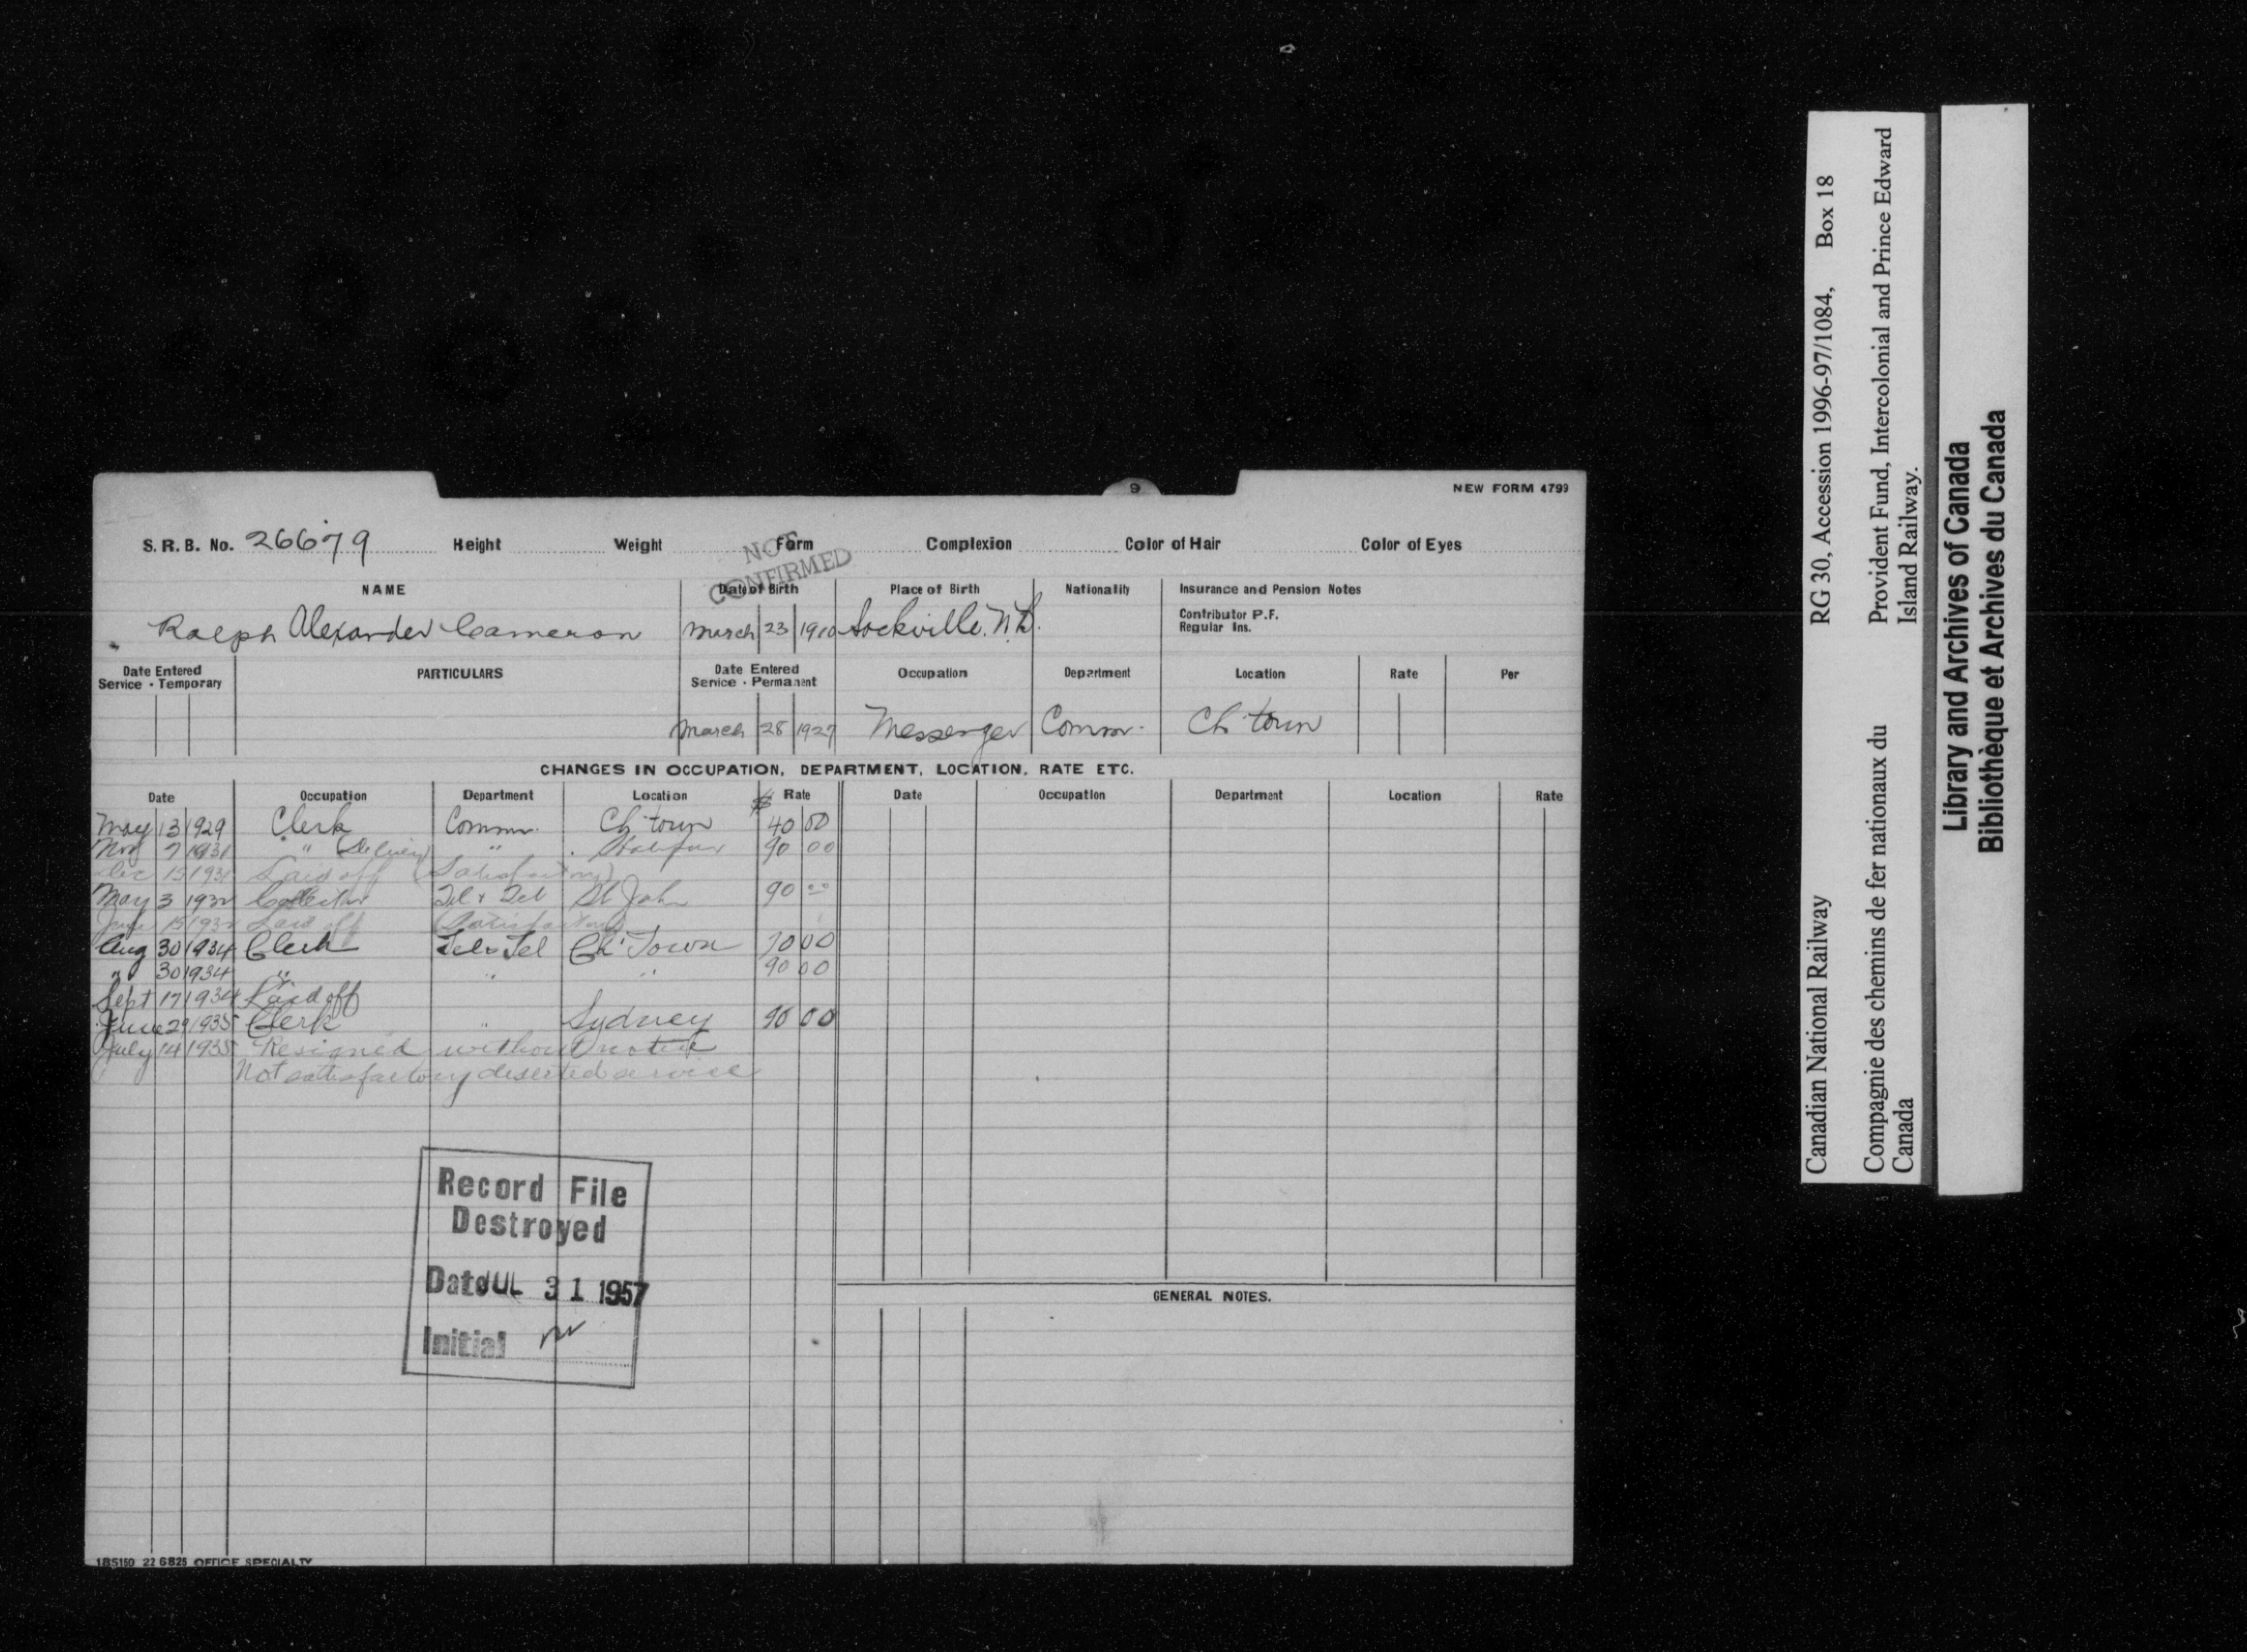 9
NEW FORM 4799
S. R. B. No. 26679 Height Weight Form Complexion Color of Hair Color of Eyes
NOT CONFIRMED
NAME Date of Birth Place of Birth Nationality Insurance and Pension Notes
Contributor P.F.
Regular Ins.
Ralph Alexander Cameron March 23 1910 Sackville. N.B.
Date Entered Service - Temporary PARTICULARS Date Entered Service - Permanent Occupation Department Location Rate Per
March 28 1927 Messenger Comm. Ch'town
CHANGES IN OCCUPATION, DEPARTMENT, LOCATION, RATE ETC.
Date Occupation Department Location $ Rate Date Occupation Department Location Rate
May 13 1929 Clerk Comm. Ch'town 40 00
Nov 7 1931 " (Delivery) " Halifax 90 00
Dec 15 1931 Laid off (Satisfactory)
May 3 1932 Collector Tel & Tel St John 90 00
June 15 1932 Laid off (Satisfactory)
Aug 30 1934 Clerk Tel & Tel Ch'Town 70 00
" 30 1934 " " " 90 00
Sept 17 1934 Laid off
June 29 1935 Clerk " Sydney 90 00
July 14 1935 Resigned without notice
Not satisfactory deserted service
Record File
Destroyed
Date JUL 31 1957
Initial
GENERAL NOTES.
185160 22 6825 OFFICE SPECIALTY
Canadian National Railway RG 30, Accession 1996-97/1084, Box 18
Compagnie des chemins de fer nationaux du Canada
Provident Fund, Intercolonial and Prince Edward Island Railway.
Library and Archives of Canada
Bibliothèque et Archives du Canada